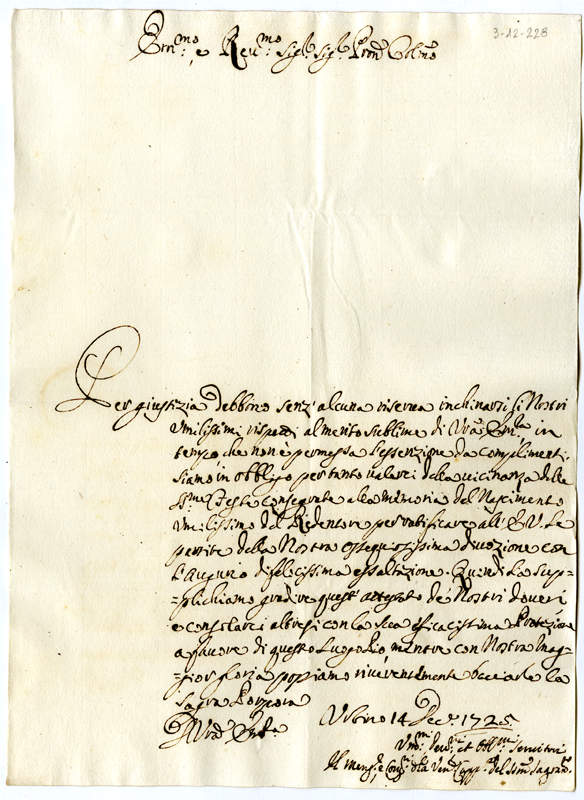 3-12-228
Em.mo e Rev.mo Sig.r Sig.r Pron. Colmo
Per giustizia debbono senz' alcuna riserva inchinarsi li Nostri
Umilissimi rispetti al merito sublime di Vra Emza in
tempo che non è permessa l'essenzione da complimenti.
Siamo in obbligo per tanto valerci della vicinanza delle
SSme Feste consegrate alla memoria del Nascimento
Umilissimo del Redentore per ratificare all' E. V. le
partite della Nostra ossequiosissima divozione con
l'Augurio di felicissima essaltazione. Quindi La sup=
=plichiamo gradire quest' attestato de Nostri doveri
e consolarci altresi con la Sua efficacissima Protezione
a favore di questo Luogo Pio mentre con Nostra mag=
=gior gloria possiamo riverentemente bacciarle la
Sagra Porpora
Di Vra Emza Urbino 14 Dec.e 1725
Um.mi Dev.mi et Obb.mi Servitori
Il della Ven. Capp. del SSm Sagram.